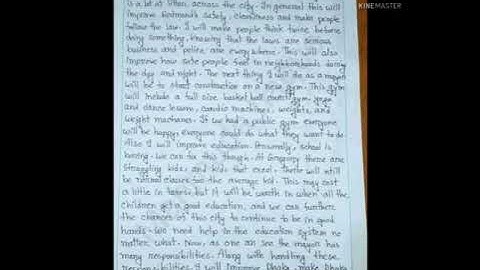 KINEMASTER
is a lot of litter across the city. In general this will
improve Redmond's safety, cleanliness and make people
follow the law. I will make people think twice before
doing something, knowing that the laws are serious
business and police are everywhere. This will also
improve how safe people feel in neighborhoods during
the day and night. The next thing I will do as a mayor
will be to start construction on a new gym. This gym
will include a full size basketball court, gym, yoga
and dance lessons, cardio machines, weights, and
weight machines. If we had a public gym everyone
will be happy, everyone could do what they want to do.
Also I will improve education. Personally, school is
boring. we can fix this though. At Gregory there are
struggling kids and kids that excel. There will still
be normal classes for the average kid. This may cost
a little in taxes, but it will be worth in when all the
children get a good education, and we can further
the chances of this city to continue to be in good
hands. We need help in the education system no
matter what. Now, as one can see the mayor has
many responsibilities. Along with handling these
responsibilities I will improve Dhaka, make Dhaka